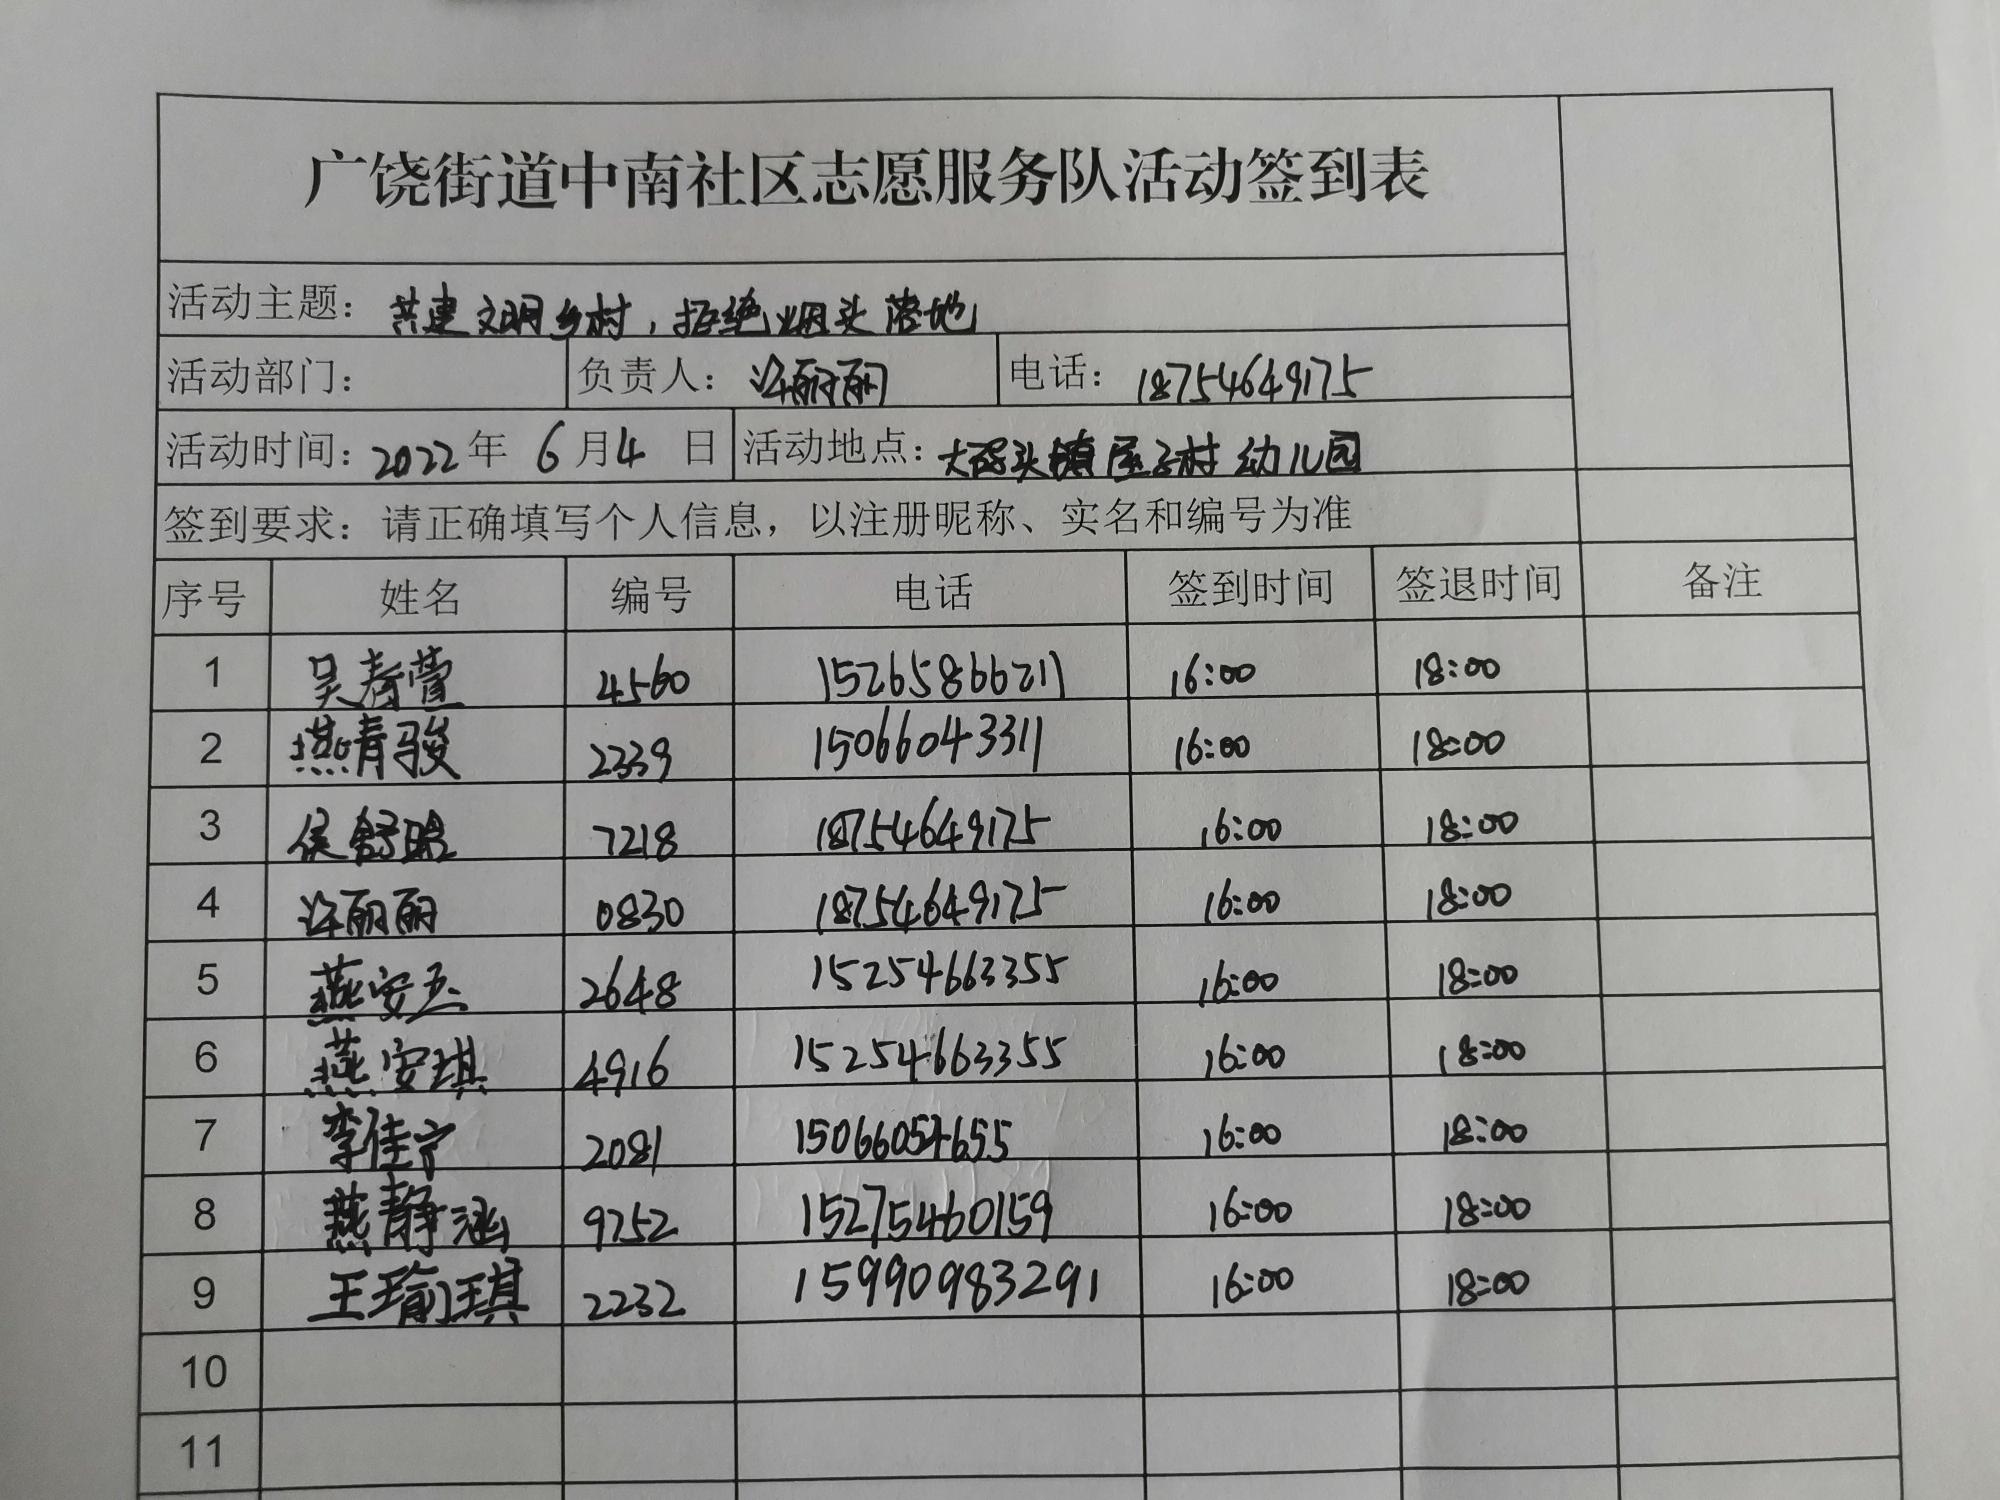 广饶街道中南社区志愿服务队活动签到表
活动主题: 共建文明乡村, 拒绝烟头落地
活动部门: 负责人: 许丽丽 电话: 18754649175
活动时间: 2022年 6月4 日 活动地点: 大码头镇屋子村幼儿园
签到要求: 请正确填写个人信息, 以注册昵称、实名和编号为准
序号 姓名 编号 电话 签到时间 签退时间 备注
1 吴春萱 4560 15265866211 16:00 18:00
2 燕青骏 2339 15066043311 16:00 18:00
3 侯舒晗 7218 18754649175 16:00 18:00
4 许丽丽 0830 18754649175 16:00 18:00
5 燕安 2648 15254663355 16:00 18:00
6 燕安琪 4916 15254663355 16:00 18:00
7 李佳宁 2081 15066054655 16:00 18:00
8 燕静涵 9752 15275460159 16:00 18:00
9 王瑜琪 2232 15990983291 16:00 18:00
10
11